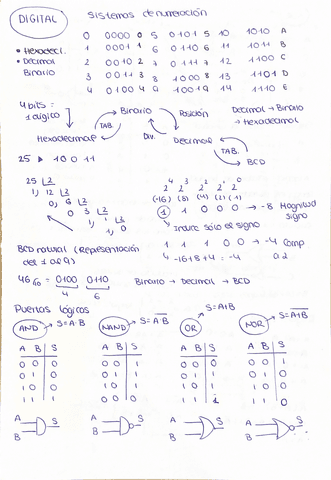 DIGITAL
Sistemas de numeración
0 0000 0 5 0101 5 10 1010 A
• Hexadeci. 1 0001 1 6 0110 6 11 1011 B
• Decimal 2 0010 2 7 0111 7 12 1100 C
Binario 3 0011 3 8 1000 8 13 1101 D
4 0100 4 9 1001 9 14 1110 E
4 bits =
1 dígito
Binario Posición Decimal → Binario
→ Hexadecimal
TAB. Div.
Hexadecimal Decimal
TAB.
BCD
25 → 10011
4 3 2 1 0
25 |2 2 2 2 2 2
1, 12 |2 (-16) (8) (4) (2) (1)
0, 6 |2 1 1 0 0 0 → -8 Magnitud
0 3 |2 signo
1, 1 |2 Indica sólo el signo
1, 0
1 1 1 0 0 → -4 Comp
BCD natural (Representación -16+8+4 = -4 a 2
del 1 al 9)
46 10 = 0100 0110 Binario → Decimal → BCD
4 6
Puertas lógicas
AND → S = A·B NAND → S = A·B OR → S = A+B NOR → S = A+B
A B S A B S A B S A B S
0 0 0 0 0 1 0 0 0 0 0 1
0 1 0 0 1 1 0 1 1 0 1 0
1 0 0 1 0 1 1 0 1 1 0 0
1 1 1 1 1 0 1 1 1 1 1 0
A S A S A S A S
B B B B